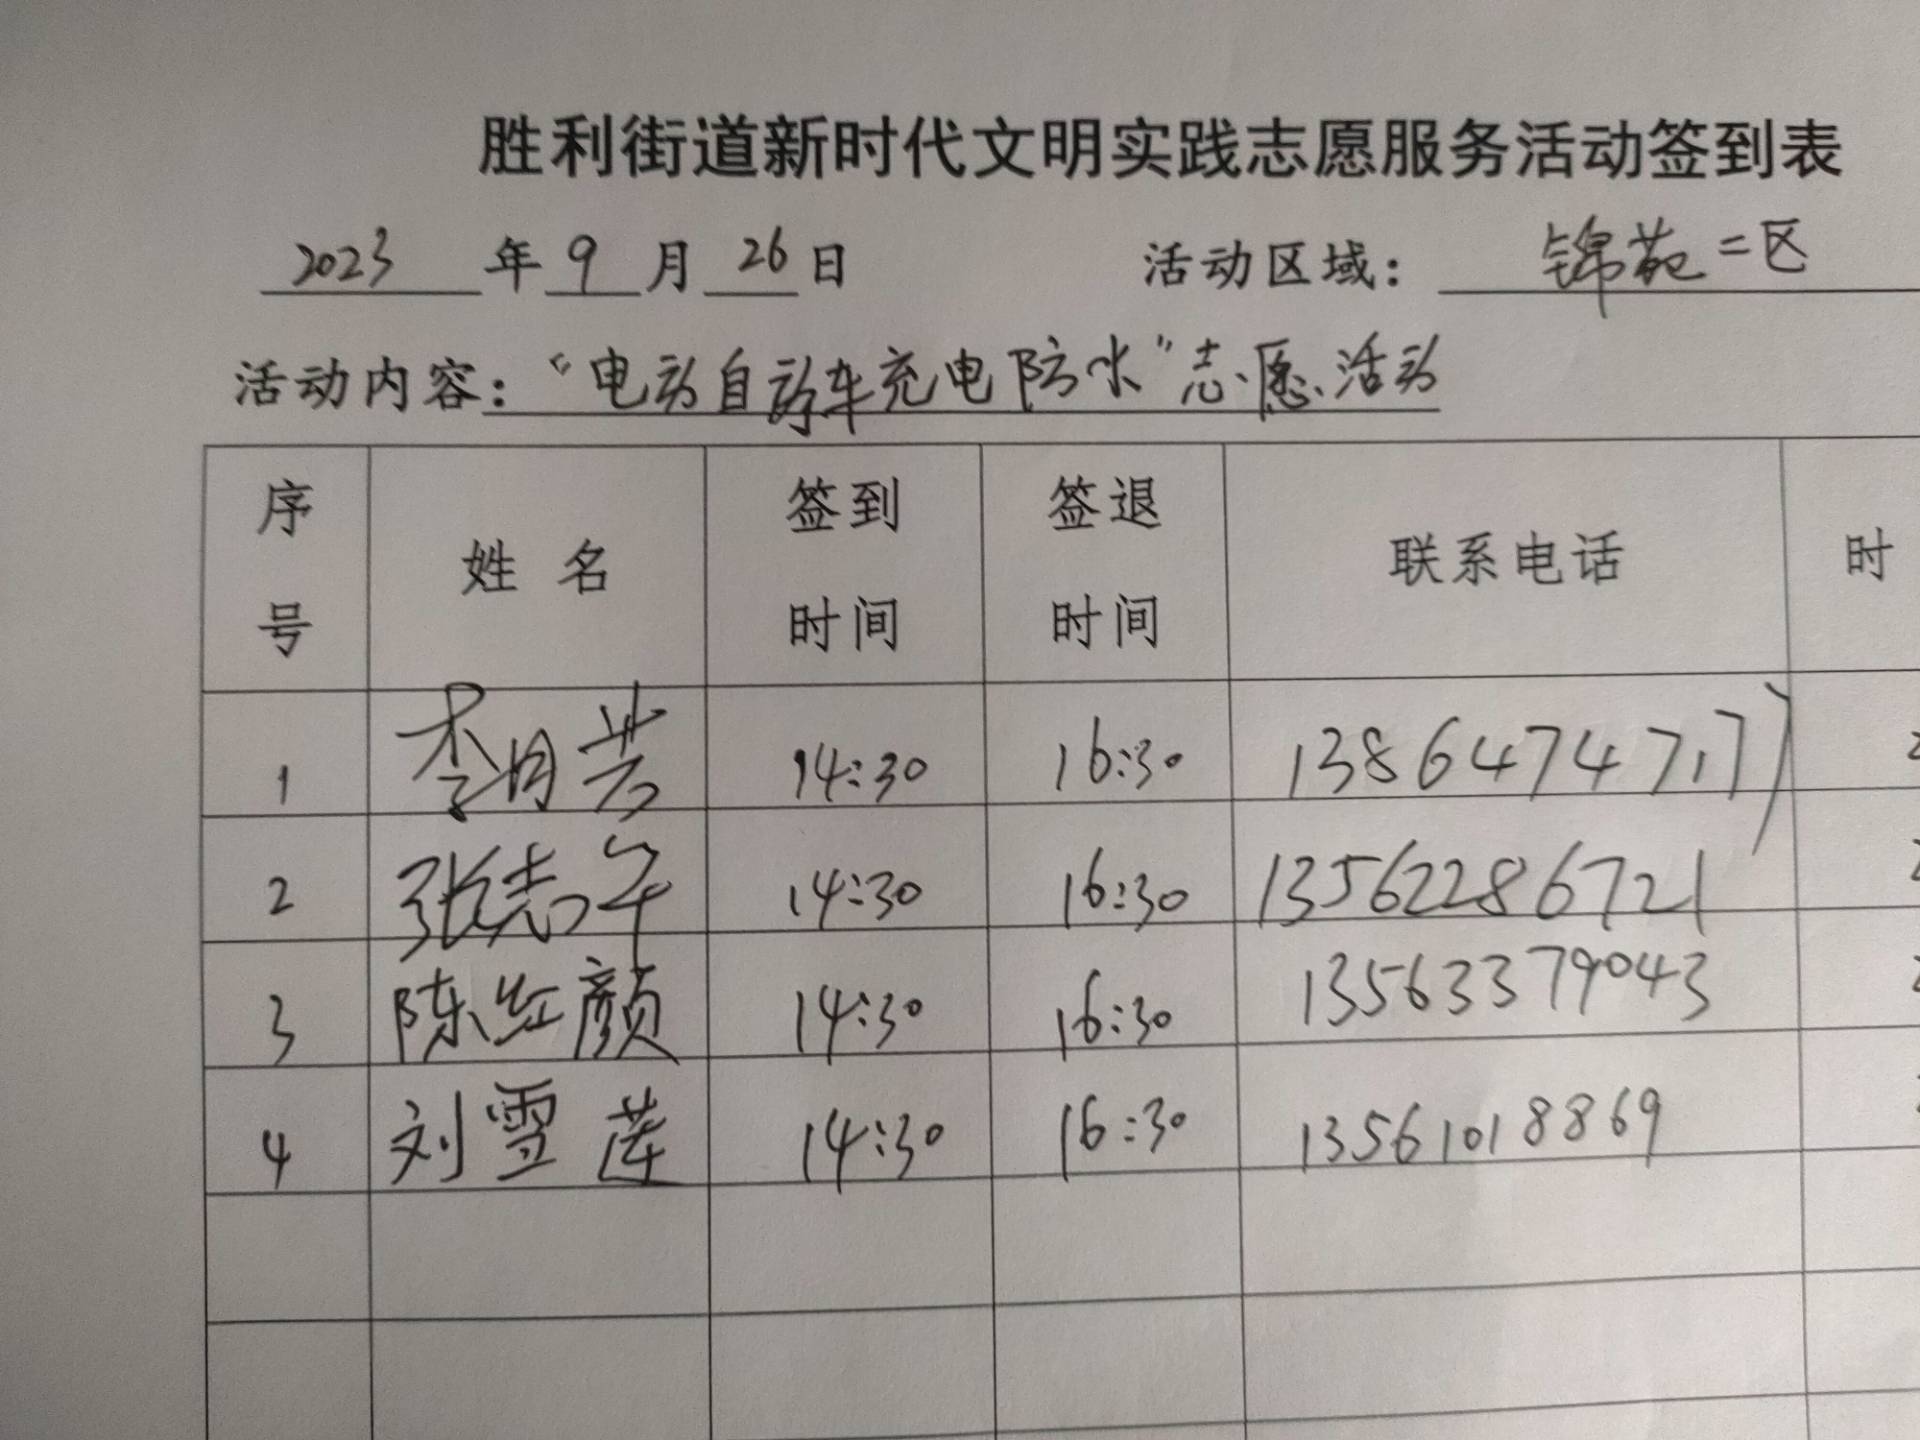 胜利街道新时代文明实践志愿服务活动签到表
2023年9月26日 活动区域：锦苑二区
活动内容：“电动自动车充电防水”志愿活动
序号 姓名 签到时间 签退时间 联系电话 时
1 李月芳 14:30 16:30 13864747177
2 张志午 14:30 16:30 13562286721
3 陈红颜 14:30 16:30 13563379043
4 刘雪莲 14:30 16:30 13561018869